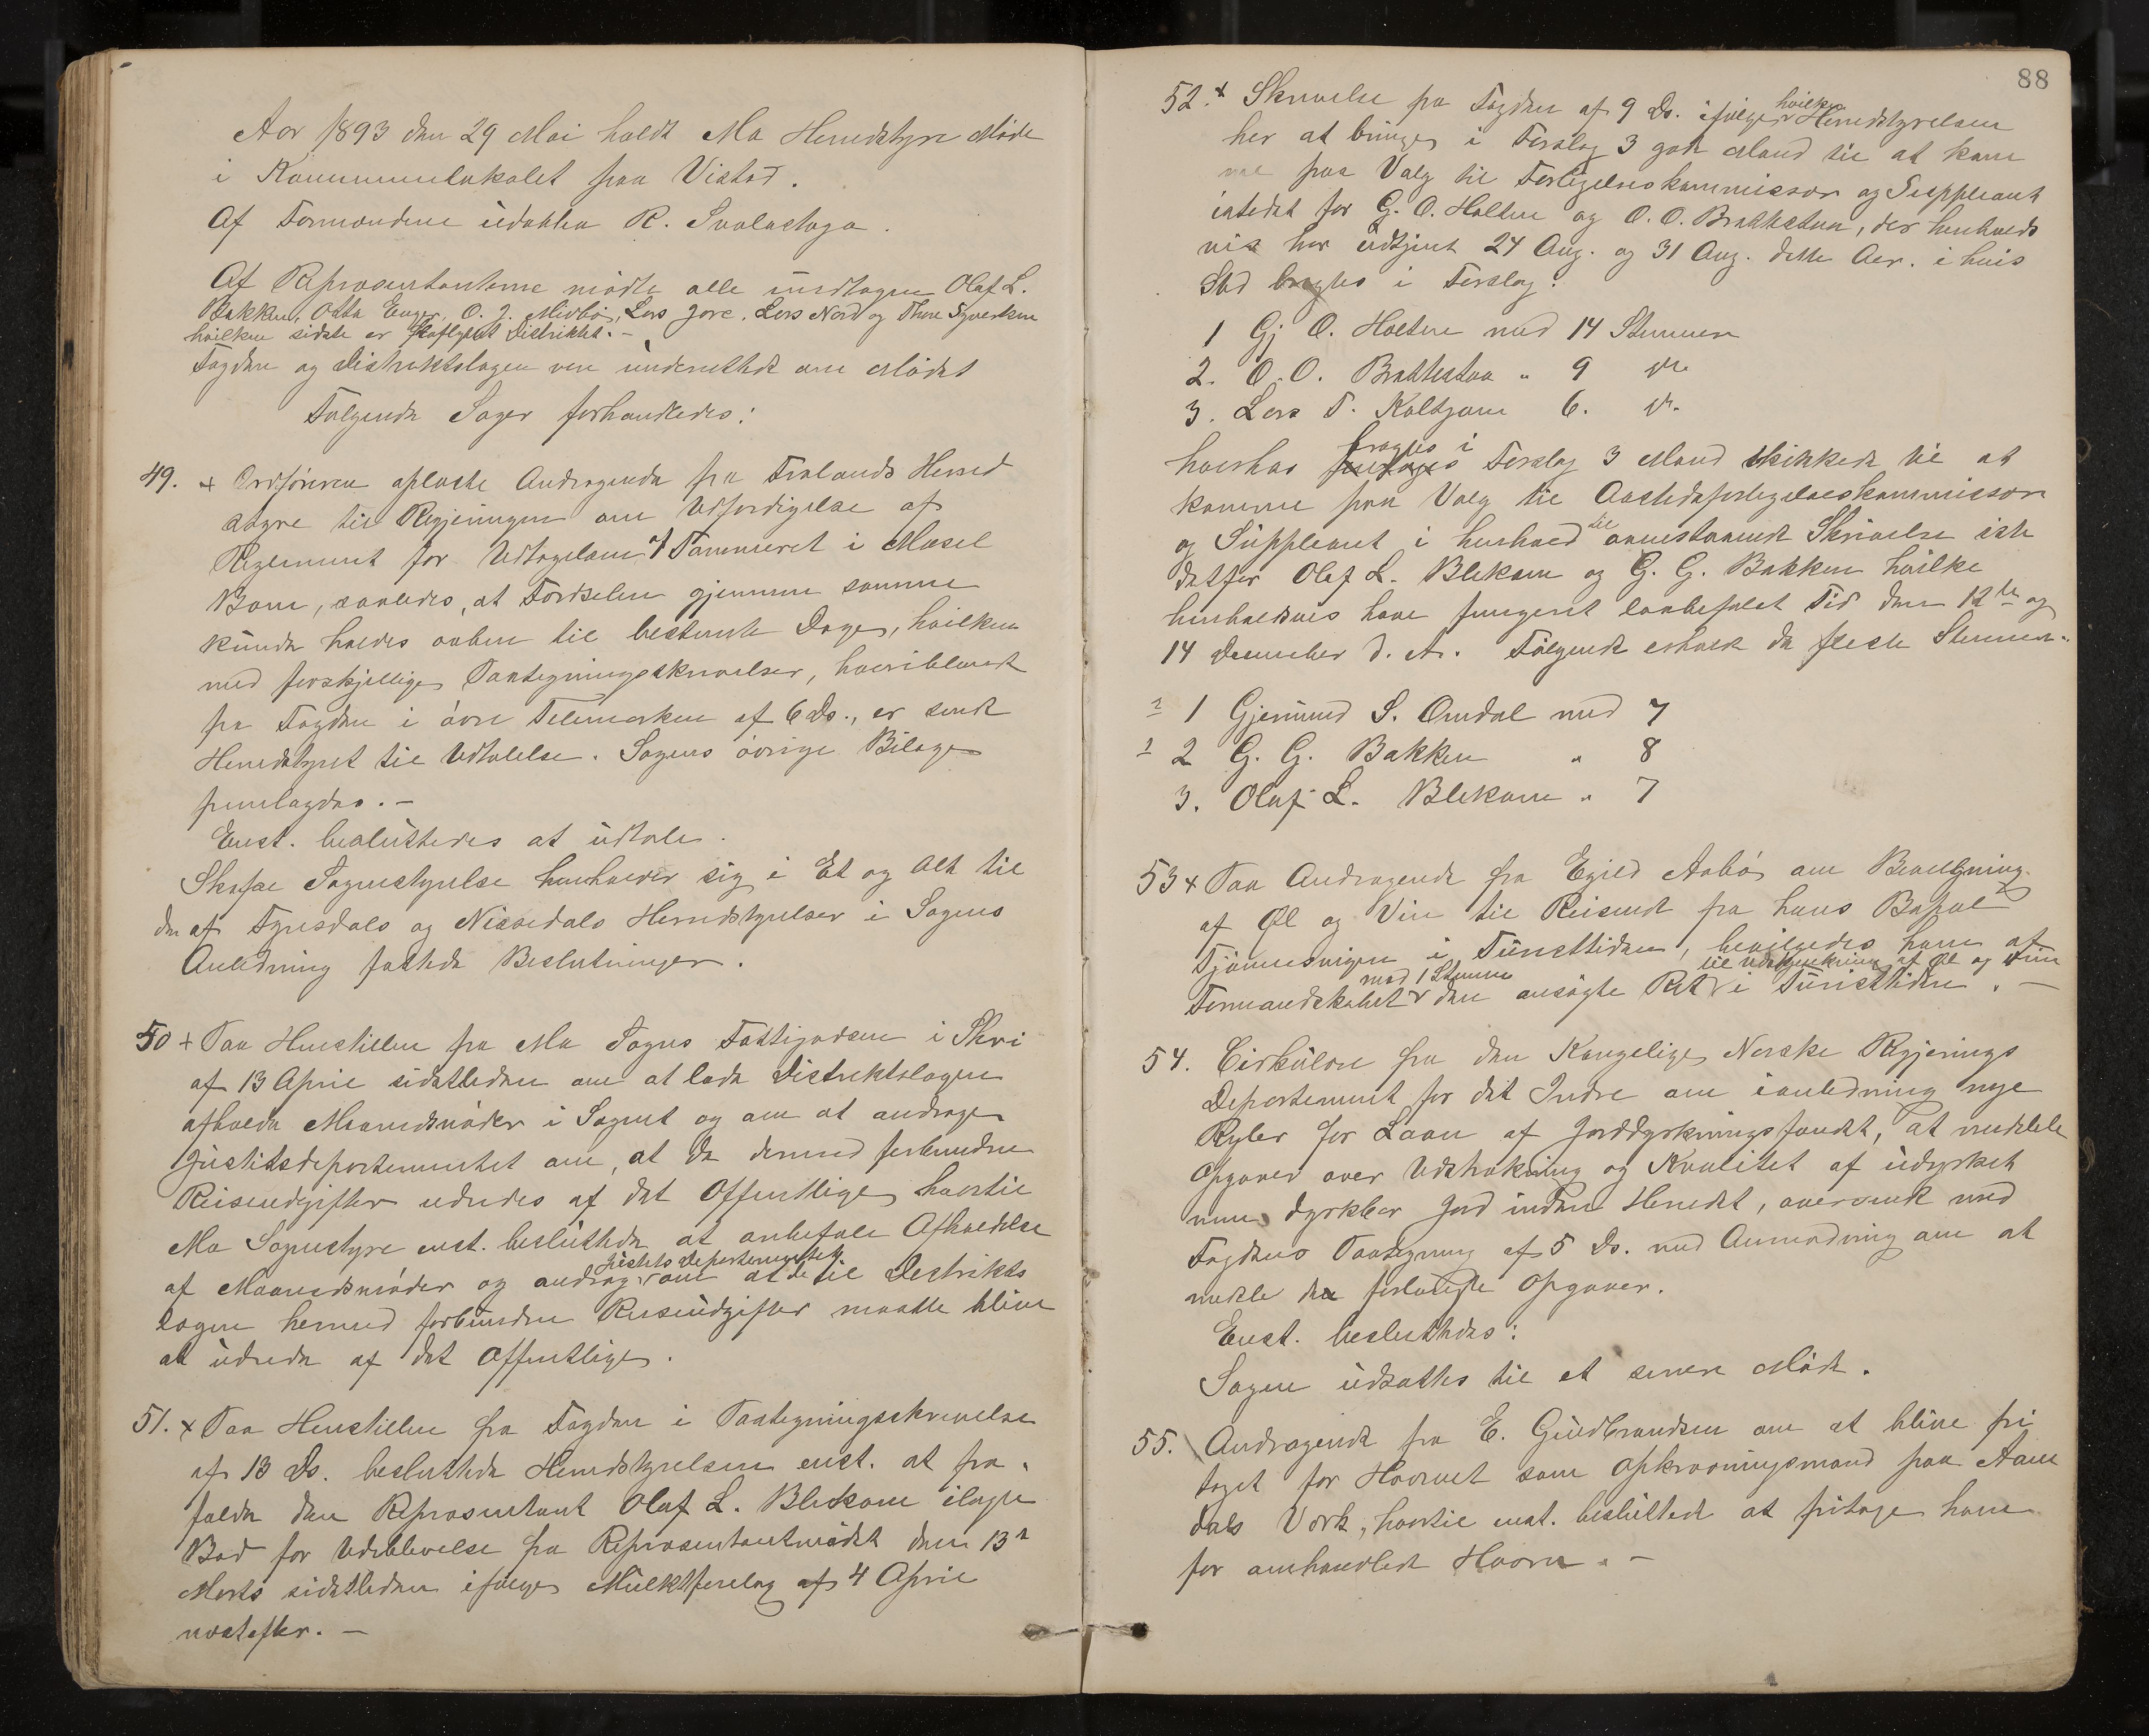 Aar 1893 den 29 Mai holdt Mo Herredstyre Møde
i Kommunelokalet paa Vistad.
Af Formændene udeblev R. Svalastoga.
Af Repræsentanterne mødte alle undtagen Olaf L.
Bakken, Otto Enger, O. J. Midbø, Lars Jore, Lars Nord og Thor
hvilken sidste er fraflyttet Distriktet. -
Fogden og Distriktslægen var underrettet om Mødet
Følgende Sager forhandledes:
49. + Ordføreren oplæste Andragende fra Treungens Herred
til Regjeringen om Udfærdigelse af
Reglement for Udtagelsen af Tømmeret i
Bom, saaledes, at Færdselen gjennem samme
kunde holdes aaben til bestemte Dage, hvilken
med forskjellige Paategningsskrivelser, hvoriblandt
fra Fogden i øvre Telemarken af 6 Ds., er sendt
Herredstyret til Udtalelse. Sagens øvrige Bilage
fremlagdes. -
Enst. besluttedes at udtale.
Skafse Sognestyrelse henholder sig i Et og Alt til
de af Fyresdals og Nissedals Herredstyrelser i Sagens
Anledning fattede Beslutninger.
50 + Paa Henstillen fra Mo Sogns Fattigvæsen i Skri
af 13 April sidstleden om at lade Distriktslægen
afholde Maanedsmøder i Sognet og om at andrage
Justitsdepartementet om, at de dermed forbundne
Reiseudgifter udredes af det Offentlige, hvortil
Mo Sognestyre enst. besluttede at anbefale Afholdelse
af Maanedsmøder og andrage Justitsdepartementet om at de til Distrikts
lægen hermed forbundne Reiseudgifter maatte blive
at udrede af det Offentlige.
51. + Paa Henstillen fra Fogden i Paategningsskrivelse
af 13 Ds. besluttede Herredstyrelsen enst. at fra-
falde den Repræsentant Olaf L. Blekom ilagte
Bod for Udeblivelse fra Repræsentantmødet den 13de
Marts sidstleden ifølge Mulktforelæg af 4 April
næstefter. -
88
52. + Skrivelse fra Fogden af 9 Ds. ifølge hvilken Herredstyrelsen
har at bringe i Forslag 3 gode Mænd til at kom
me paa Valg til Forligelseskommissær og Suppleant
istedet for G. O. Holten og O. O. Brattestaa, der henholds
vis har udtjent 24 Aug. og 31 Aug. dette Aar. i hvis
Sted bragtes i Forslag:
1 Gj O. Holten med 14 Stemmer
2. O. O. Brattestaa " 9 do.
3. Lars T. Kaltzom 6. do.
hvorhos bragtes i Forslag 3 Mænd skikkede til at
komme paa Valg til Aastedsforligelseskommissær
og Suppleant i henhold til ovenstaaende Skrivelse iste
detfor Olaf L. Blekom og G. G. Bakken hvilke
henholdsvis have fungeret lovbefalet Tid den 12te og
14 December d. A. Følgende erholdt de fleste Stemmer.
2 1 Gjermund S. Omdal med 7
1 2 G. G. Bakken " 8
3. Olaf L. Blekom " 7
53 + Paa Andragende fra Egild Aabø om Bevilgning
af Øl og Vin til Reisende fra hans Bopæl
Tjønnesvigen i Turisttiden, bevilgedes ham af
Formandskabet med 1 Stemme den ansøgte Ret til Udskjænkning af Øl og Vin i Turisttiden. -
54. Cirkulære fra den Kongelige Norske Regjerings
Departement for det Indre om i anledning nye
Regler for Laan af Jorddyrkningsfondet, at meddele
Opgaver over Udstrækning og Kvalitet af udyrket
men dyrkbar Jord inden Herredet, oversendt med
Fogdens Paategning af 5 Ds. med Anmodning om at
meddele de forlangte Opgaver.
Enst. besluttedes:
Sagen udsattes til et senere Møde.
55. Andragende fra E. Gudbrandsen om at blive fri
taget for Hvervet som Opkrævningsmand paa Aam
dals Værk, hvortil enst. besluttede at fritage ham
for omhandlede Hverv. -